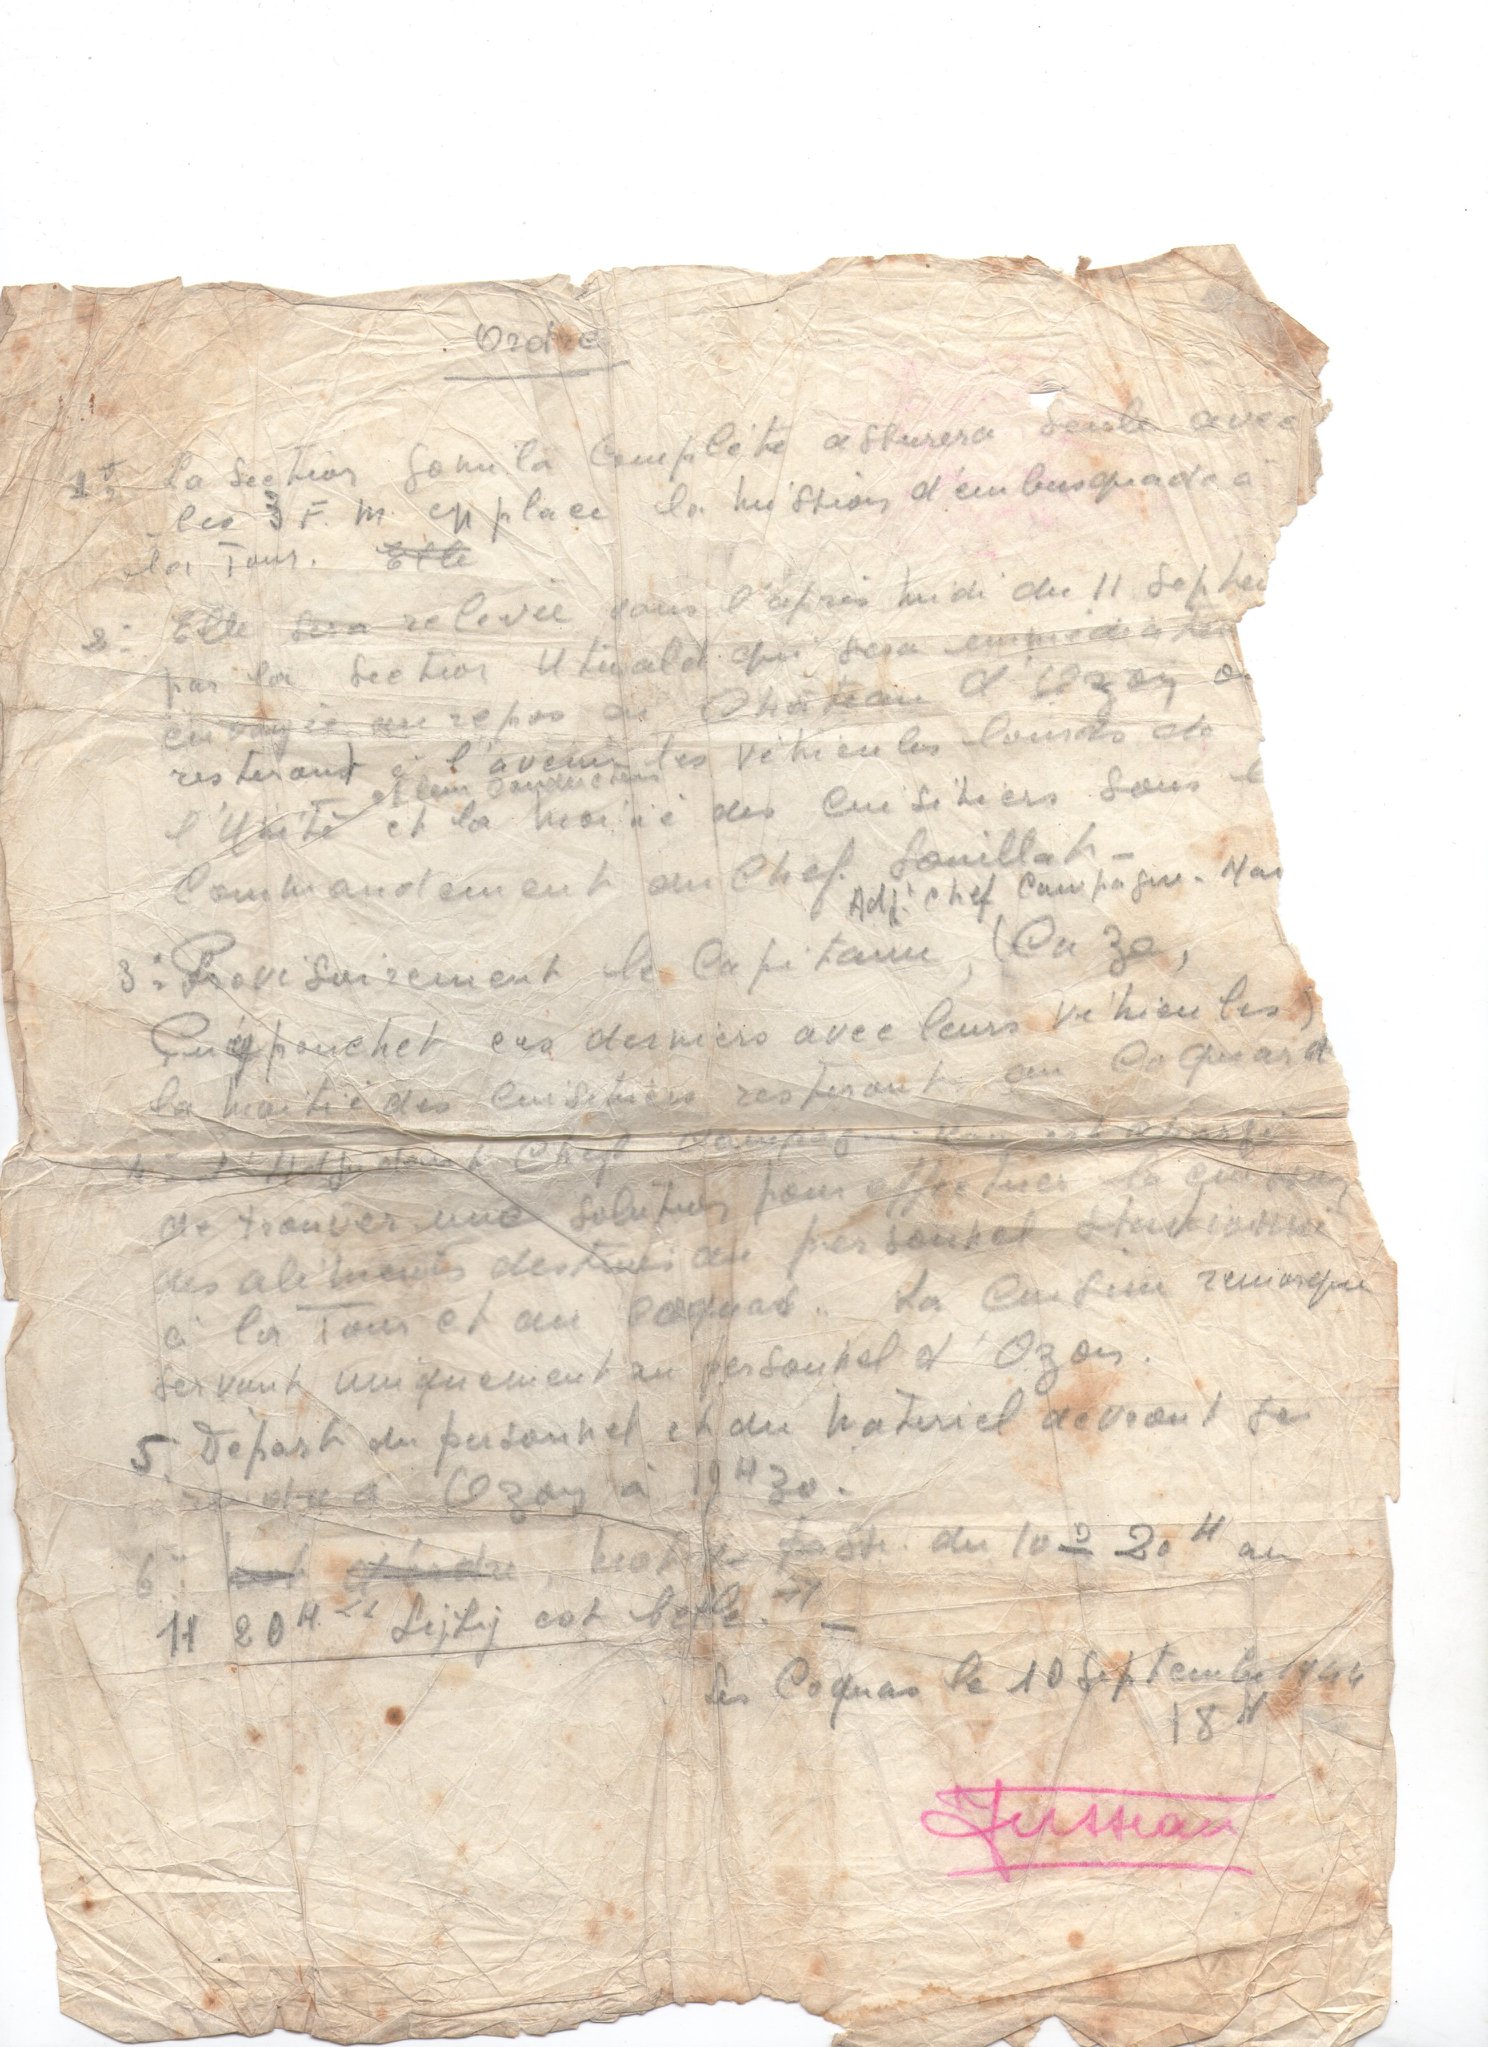 Ordre
1º La Section Gomila Complète assurera seule avec
les 3 F.M. en place la mission d'embuscade à
la Tour. Elle
2º Elle sera relevée dans l'après midi du 11 Septe
par la Section qui sera immédiate
envoyée au repos au Château d'Ozon
resteront à l'avenir les véhicules lourds de
et leur conducteurs
l'Unité et la moitié des Cuisiniers sous l
Commandement du Chef Souillat
Adjt Chef Campagne
3º Provisoirement le Capitaine, (Caze,
Puypouchet ces derniers avec leurs véhicules)
la moitié des Cuisiniers resteront au Coquard
4º L'Adjudant Chef Campagne est chargé
de trouver une solution pour effectuer la cuisson
des aliments destinés au personnel stationné
à la Tour et au Coquas. La Cuisine remorque
servant uniquement au personnel d'Ozon.
5. Départ du personnel et du matériel devront se
rendre à Ozon à 19H30.
6º mot de passe du 10 à 20H au
11 20H
Les Coquas le 10 Septembre 1944
18H